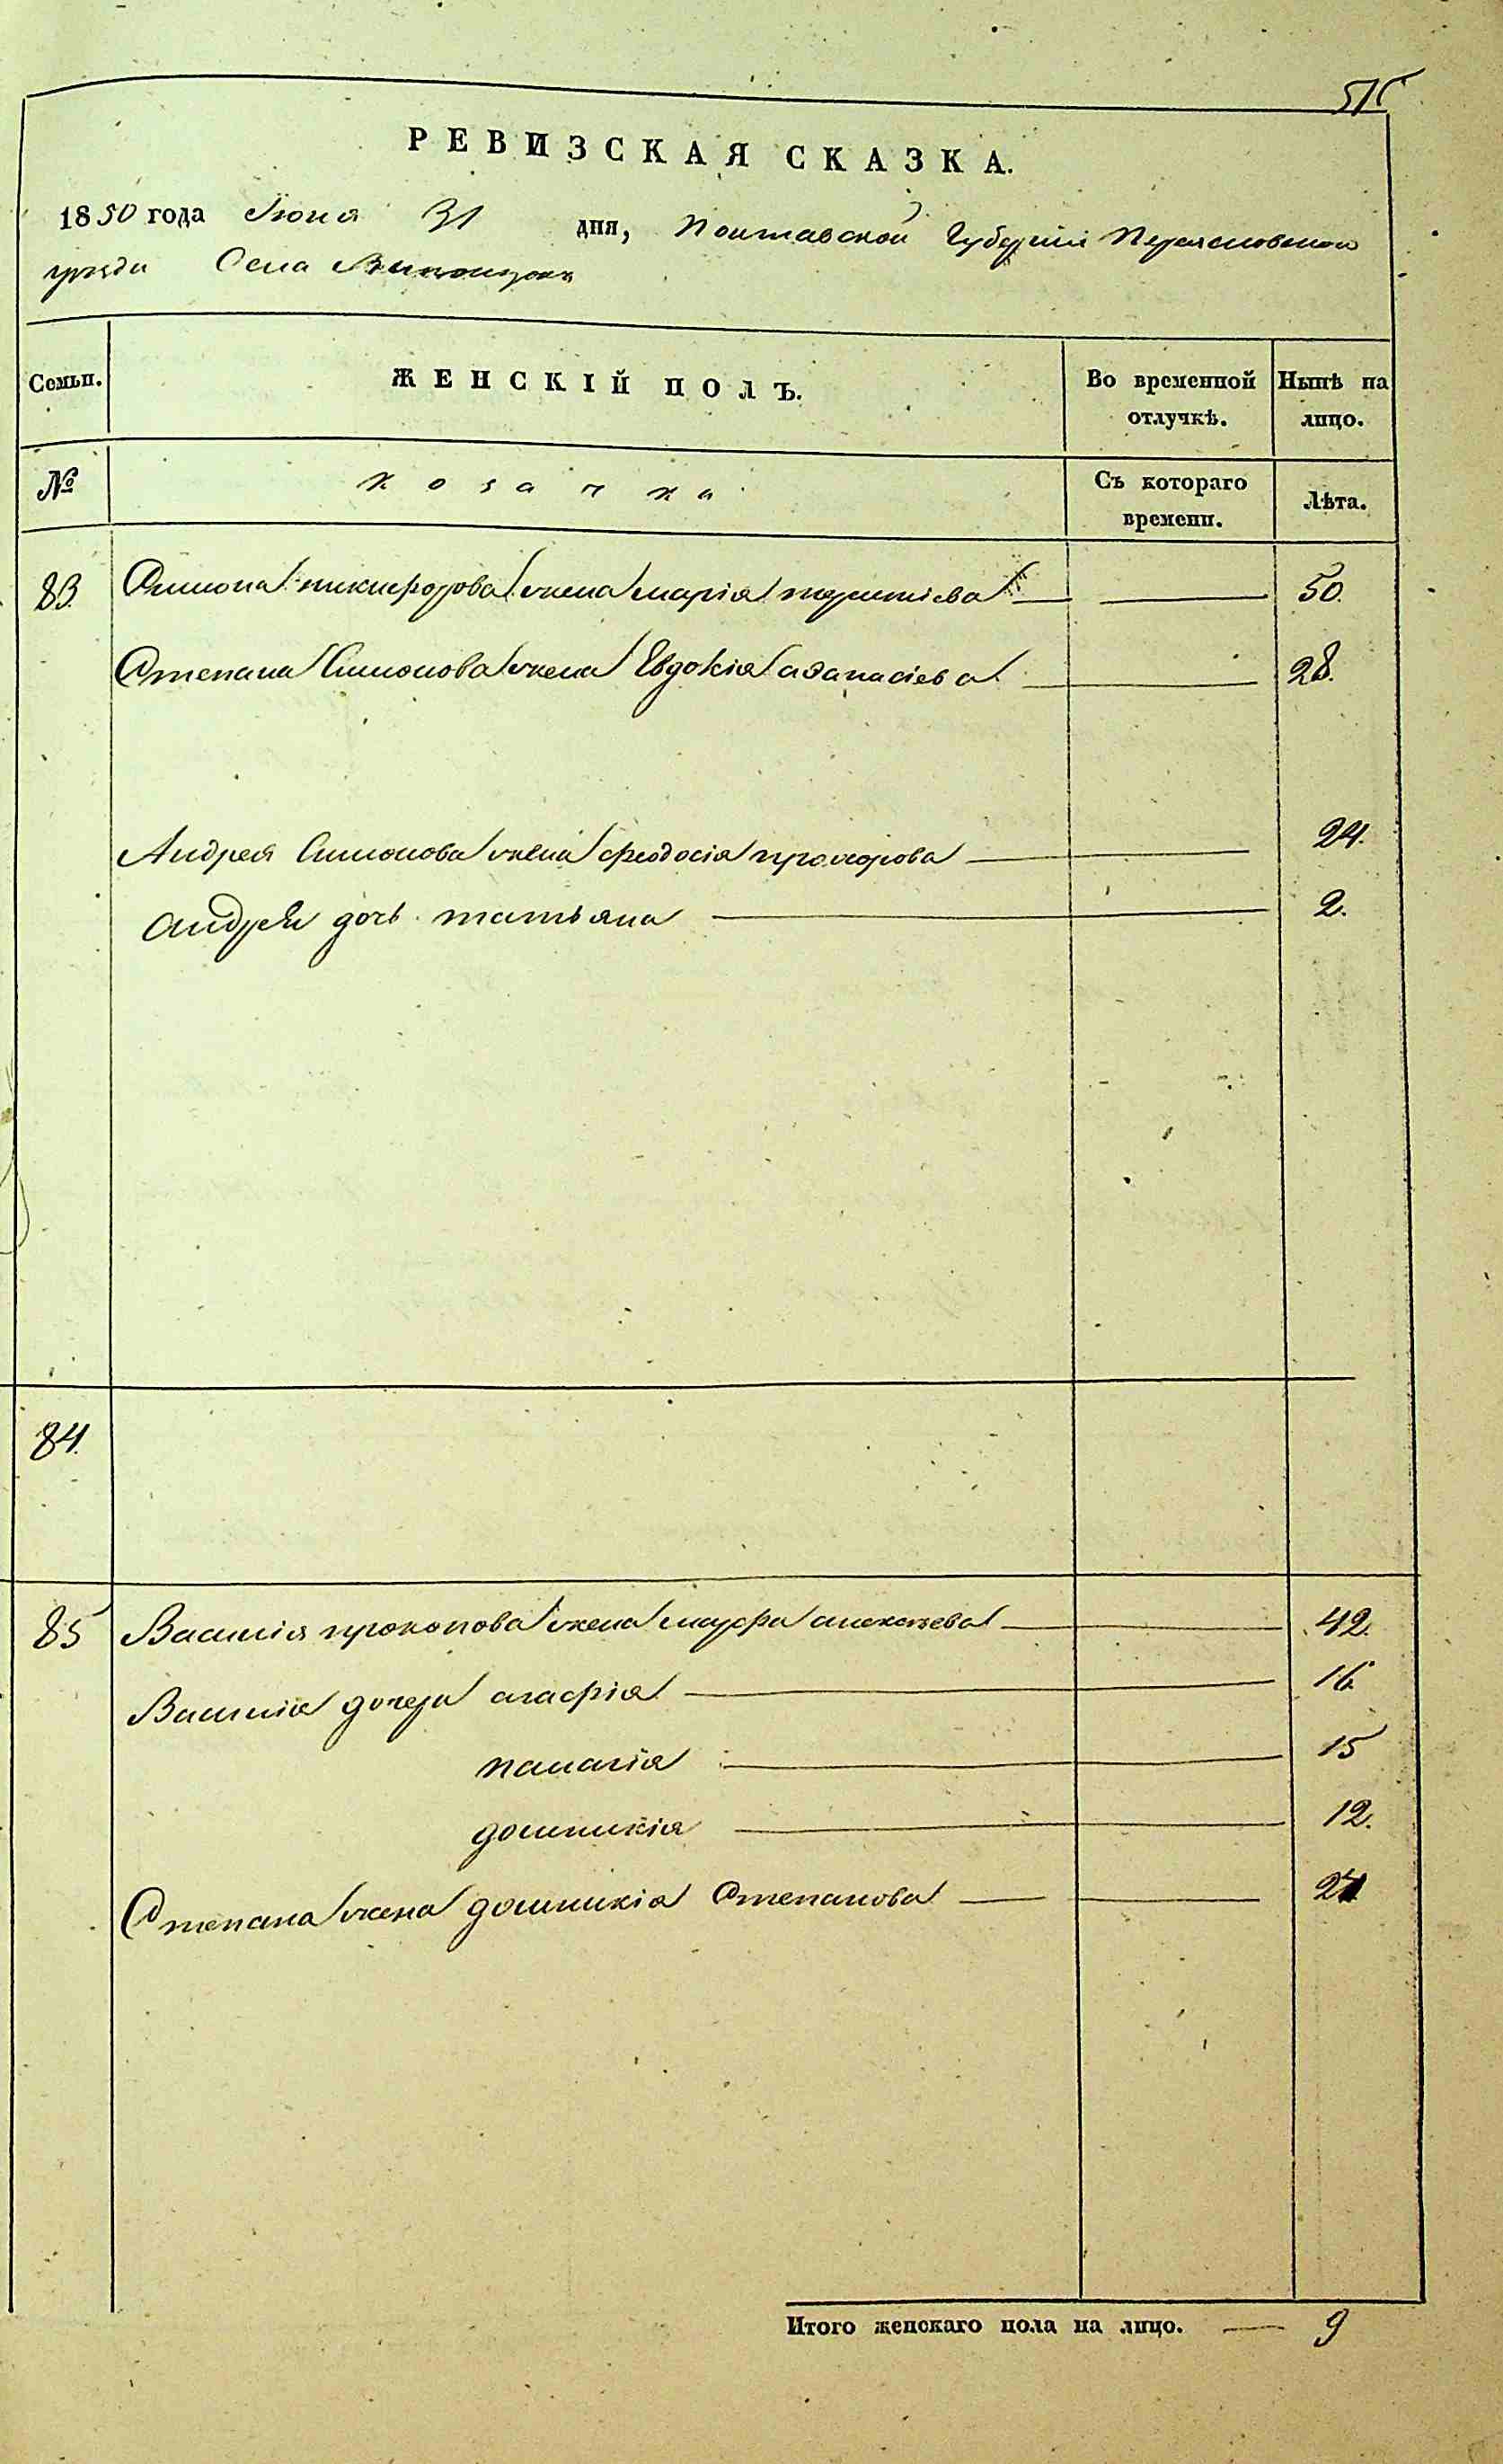 515
РЕВИЗСКАЯ СКАЗКА.
1850 года Июня 31 дня, Полтавской Губерніи Переясловского
уезда Села
Семьи. ЖЕНСКІЙ ПОЛЪ. Во временной отлучкѣ. Нынѣ на лицо.
№ козачка Съ котораго времени. Лѣта.
83. Симона никифорова жена марія терентіева 50.
Степана Симонова жена Евдокія афанасіева 28.
Андрея Симонова жена феодосія прохорова 24.
андрея дочь татьяна 2.
84.
85 Василія прокопова жена марфа алексеева 42.
Василія дочери агафія 16
палагія 15
домникія 12.
Степана жена домникія Степанова 21
Итого женскаго пола на лицо. 9